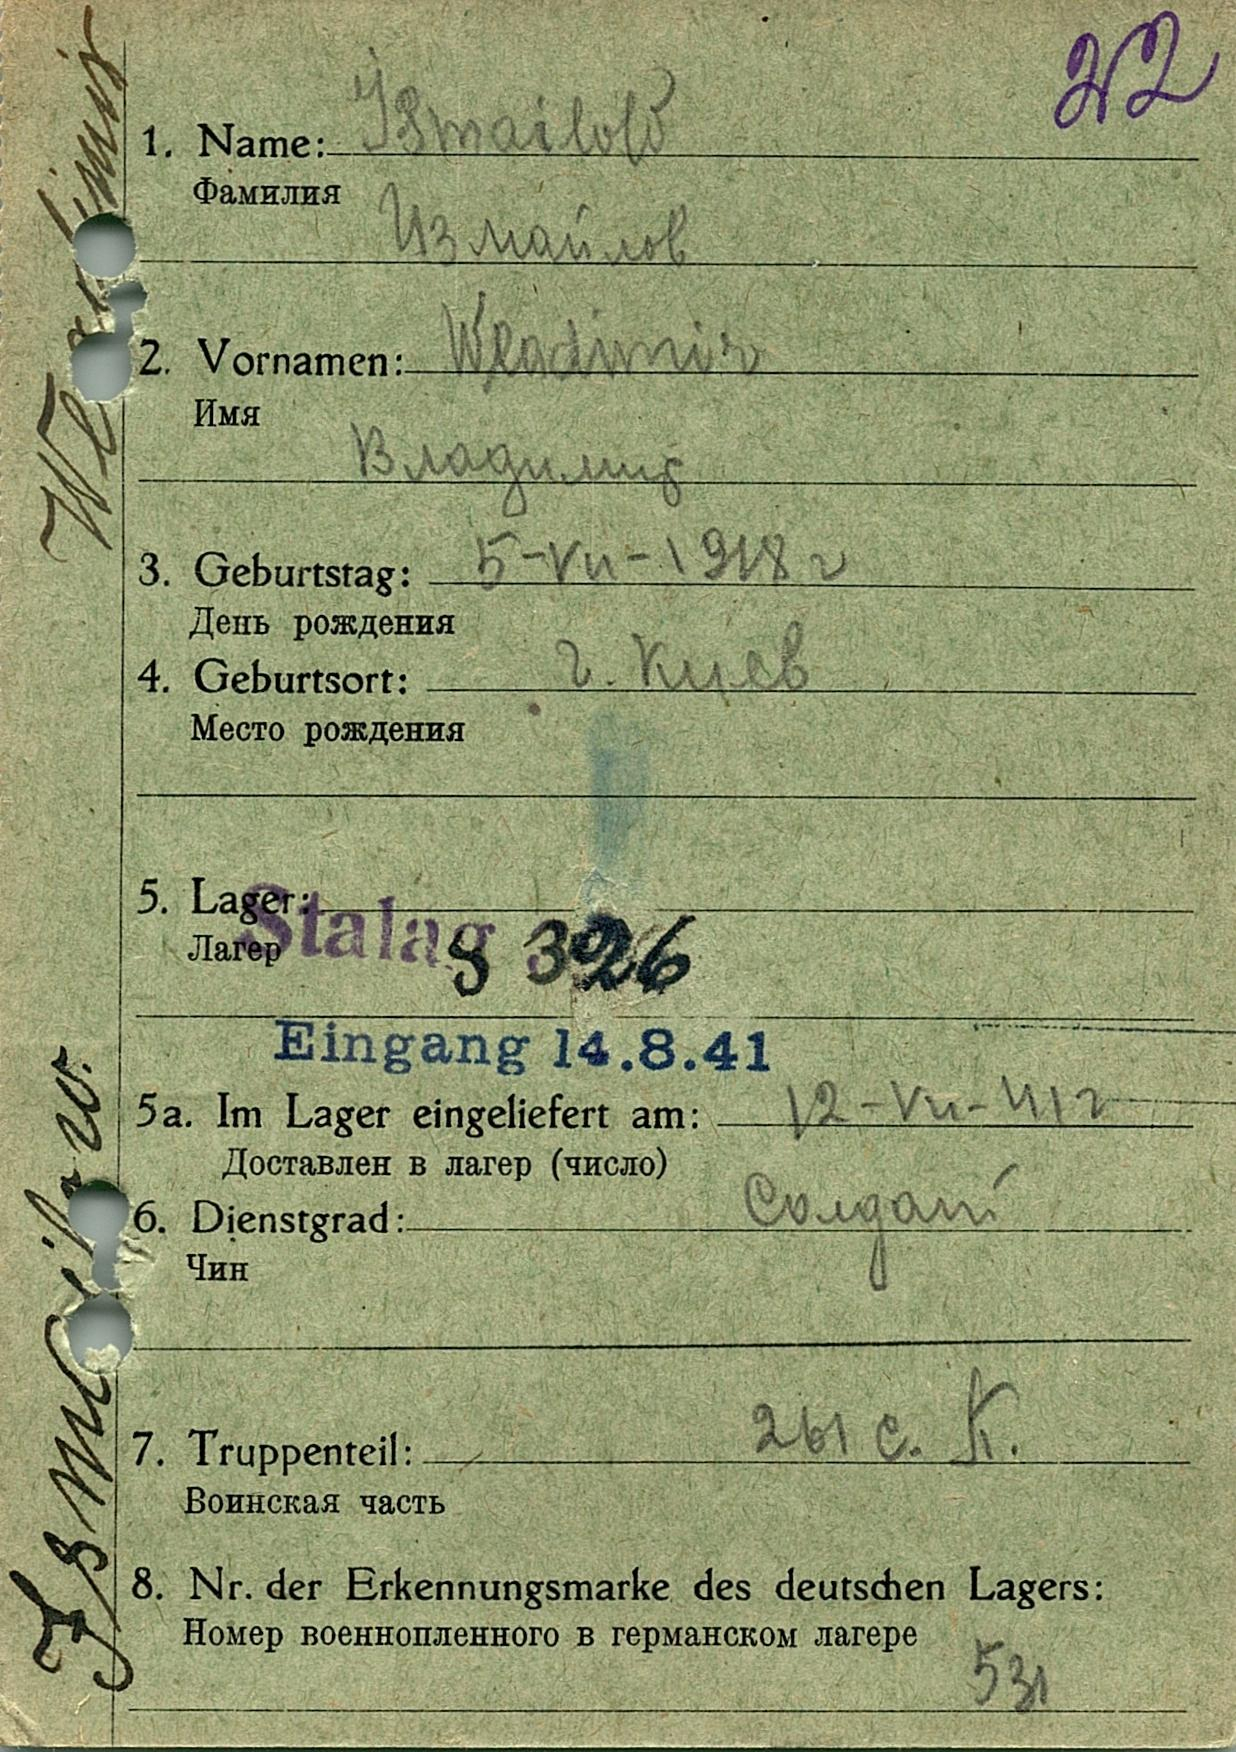 22
1. Name: Ismailow
Фамилия
Измайлов
2. Vornamen: Wladimir
Имя
Владимир
3. Geburtstag: 5-VII-1918 г
День рождения
4. Geburtsort: г. Киев
Место рождения
5. Lager:
Лагер
Stalag 326
Eingang 14.8.41
5a. Im Lager eingeliefert am: 12-VII-41 г
Доставлен в лагер (число)
6. Dienstgrad: Солдат
Чин
7. Truppenteil: 261 с.
Воинская часть
8. Nr. der Erkennungsmarke des deutschen Lagers:
Номер военнопленного в германском лагере
531
Ismailow. Wladimir